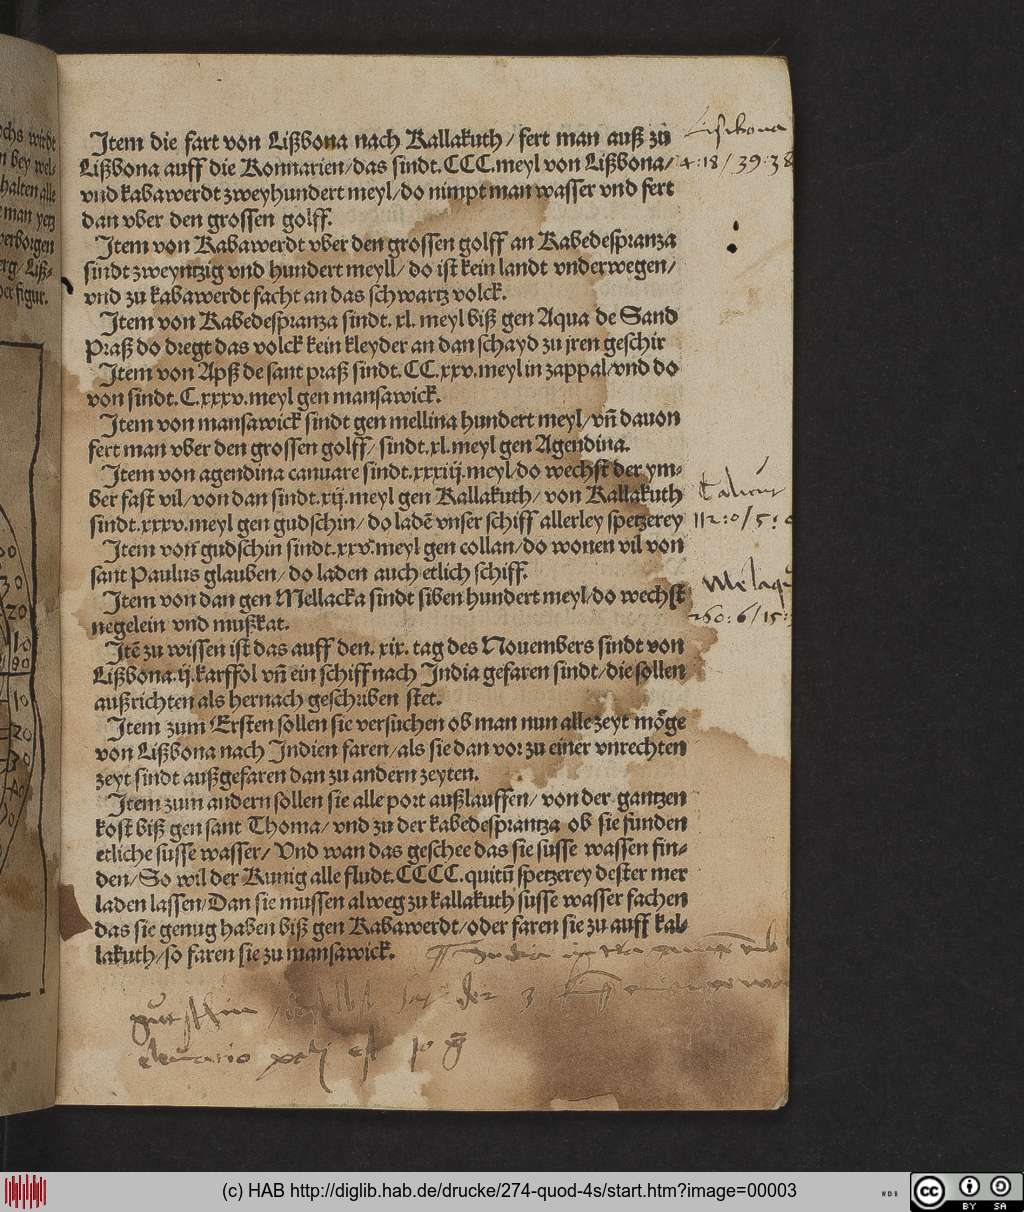 ochs wirdt
n bey wel⸗
halten alle
man yetz
verborgen
erg/ Liß⸗
der figur.
Item die fart von Lißbona nach Kallakuth/ fert man auß zů
Lißbona auff die Konnarien/das sindt.CCC.meyl von Lißbona/
vnd kabawerdt zweyhundert meyl/do nimpt man wasser vnd fert
dan vber den grossen golff.
Item von Kabawerdt vber den grossen golff an Kabedespranza
sindt zweyntzig vnd hundert meyll/ do ist kein landt vnderwegen/
vnd zu kabawerdt facht an das schwartz volck.
Item von Kabedespranza sindt. xl. meyl biß gen Aqua de Sand
Praß do dregt das volck kein kleyder an dan schayd zu jren geschir
Item von Apß de sant praß sindt.CC.xxv.meyl in zappal/vnd do
von sindt.C.xxxv.meyl gen mansawick.
Item von mansawick sindt gen mellina hundert meyl/vñ dauon
fert man vber den grossen golff/ sindt.xl.meyl gen Agendina.
Item von agendina canuare sindt.xxxiiij.meyl/do wechst der ym⸗
ber fast vil/von dan sindt.xij.meyl gen Kallakuth/ von Kallakuth
sindt.xxxv.meyl gen gudschin/ do ladẽ vnser schiff allerley spetzerey
Item von gudschin sindt.xxv.meyl gen collan/do wonen vil von
sant Paulus glauben/do laden auch etlich schiff.
Item von dan gen Mellacka sindt siben hundert meyl/do wechst
negelein vnd mußkat.
Itẽ zu wissen ist das auff den. xix. tag des Nouembers sindt von
Lißbona.ij.karffol vñ ein schiff nach India gefaren sindt/die sollen
außrichten als hernach geschriben stet.
Item zum Ersten sollen sie versuchen ob man nun alle zeyt mőge
von Lißbona nach Indien faren/als sie dan vor zu einer vnrechten
zeyt sindt außgefaren dan zu andern zeyten.
Item zum andern sollen sie alle port außlauffen/ von der gantzen
kost biß gen sant Thoma/ vnd zu der kabedesprantza ob sie funden
etliche susse wasser/ Vnd wan das geschee das sie susse wassen fin⸗
den/So wil der Kunig alle fludt.CCCC.quitũ spetzerey dester mer
laden lassen/Dan sie mussen alweg zu kallakuth susse wasser fachen
das sie genug haben biß gen Kabawerdt/oder faren sie zu auff kal⸗
lakuth/so faren sie zu mansawick.
Lissbona
4:18/39:38
Calicut
112:0/5:0
Melaqua
260:6/15:
(c) HAB http://diglib.hab.de/drucke/274-quod-4s/start.htm?image=00003
cc BY SA